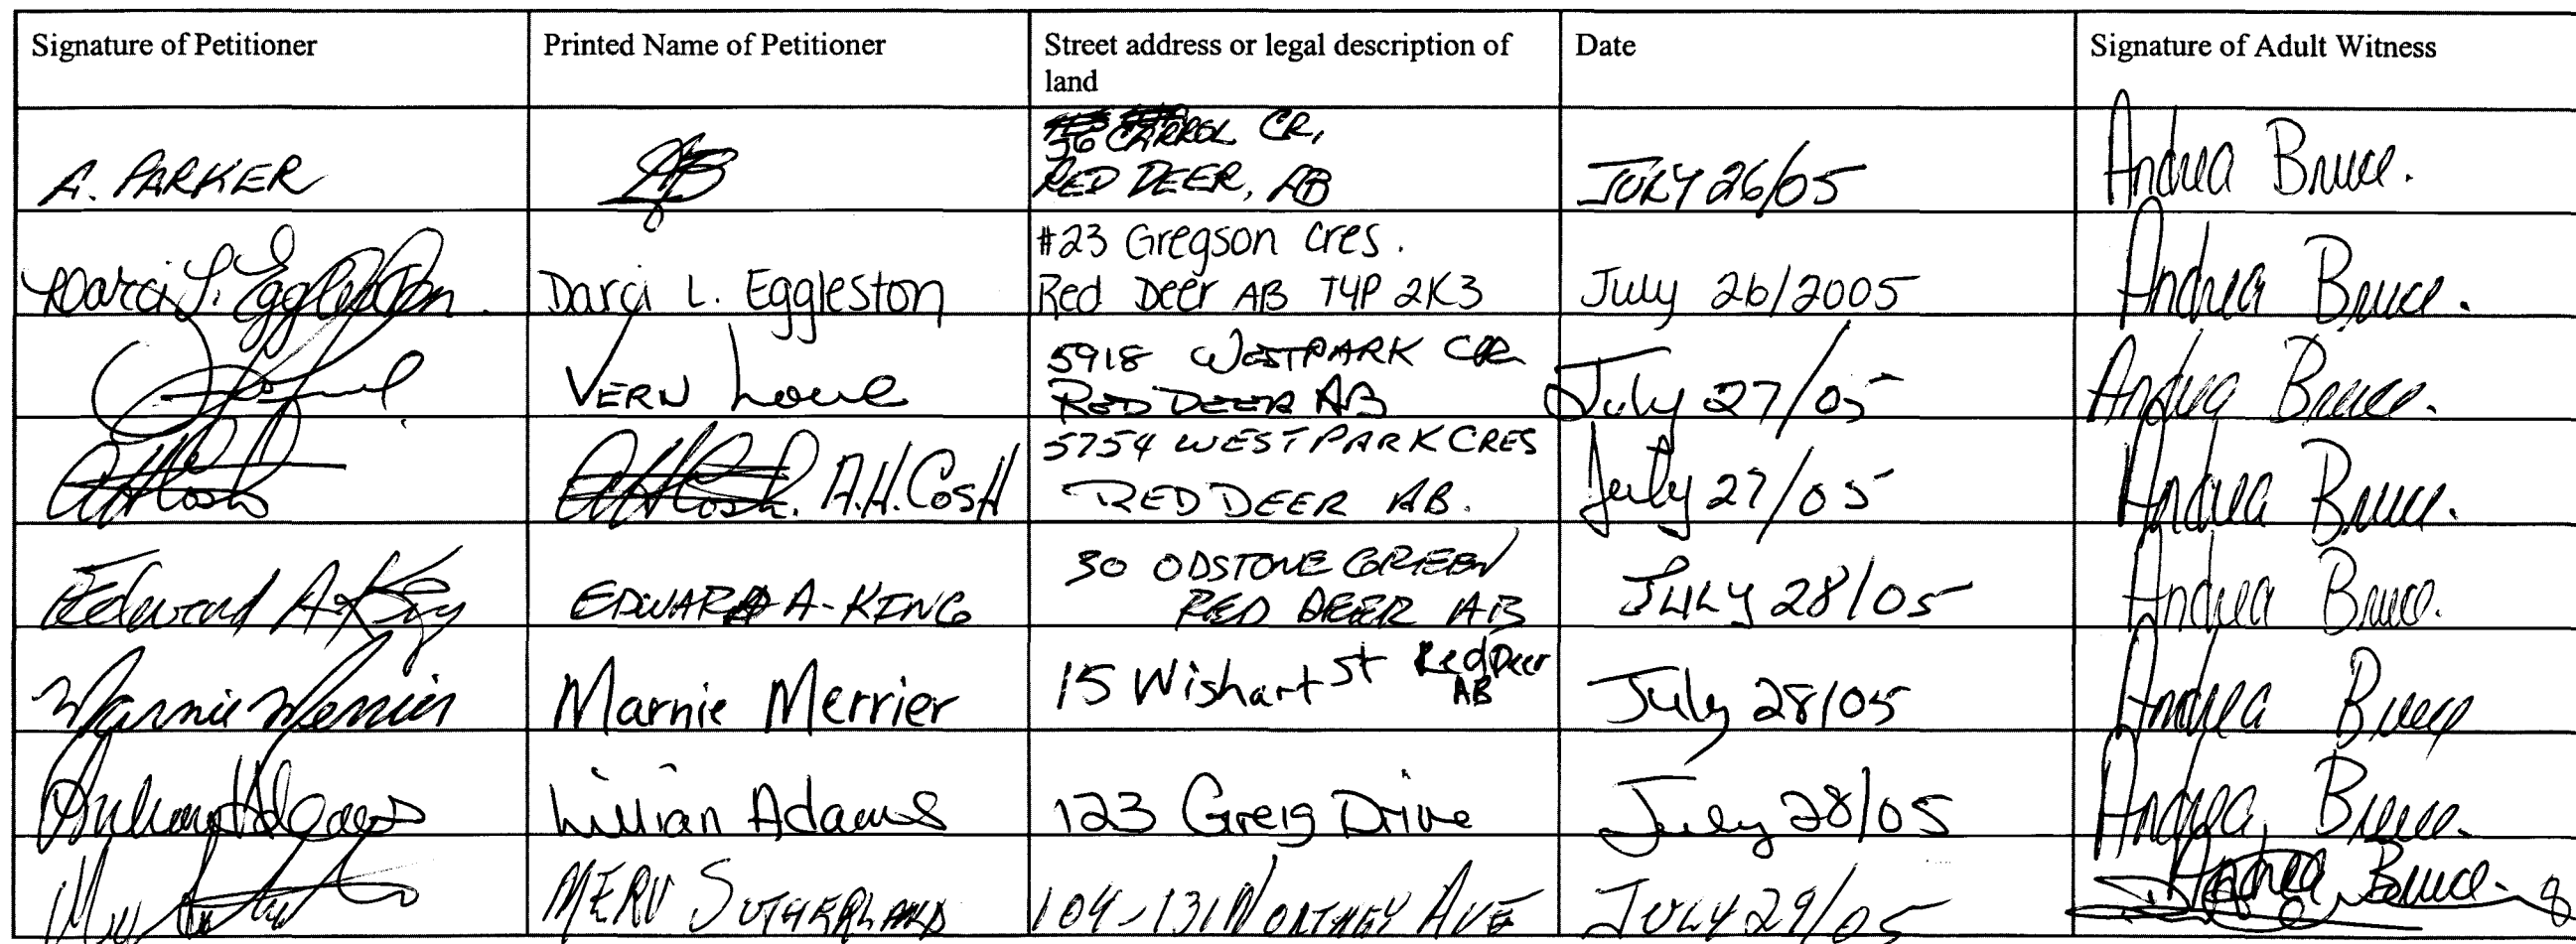 Signature of Petitioner
Printed Name of Petitioner
Street address or legal description of
land
Date
Signature of Adult Witness
A. PARKER
36 CARROL CR,
RED DEER, AB
JULY 26/05
Andrea Bruce.
Darci L. Eggleston
Darci L. Eggleston
#23 Gregson Cres.
Red Deer AB T4P 2K3
July 26/2005
Andrea Bruce.
VERN Lowe
5918 WESTPARK CR
RED DEER AB
July 27/05
Andrea Bruce.
AHCosh
A.H. COSH
5754 WESTPARK CRES
RED DEER AB.
July 27/05
Andrea Bruce.
Edward A King
EDWARD A-KING
30 ODSTONE GREEN
RED DEER AB
JULY 28/05
Andrea Bruce.
Marnie Merrier
Marnie Merrier
15 Wishart St Red Deer
AB
July 28/05
Andrea Bruce
Lillian Adams
Lillian Adams
123 Greig Drive
July 28/05
Andrea Bruce.
MERV SUTHERLAND
104-131 NORTHEY AVE
JULY 29/05
Andrea Bruce.
8